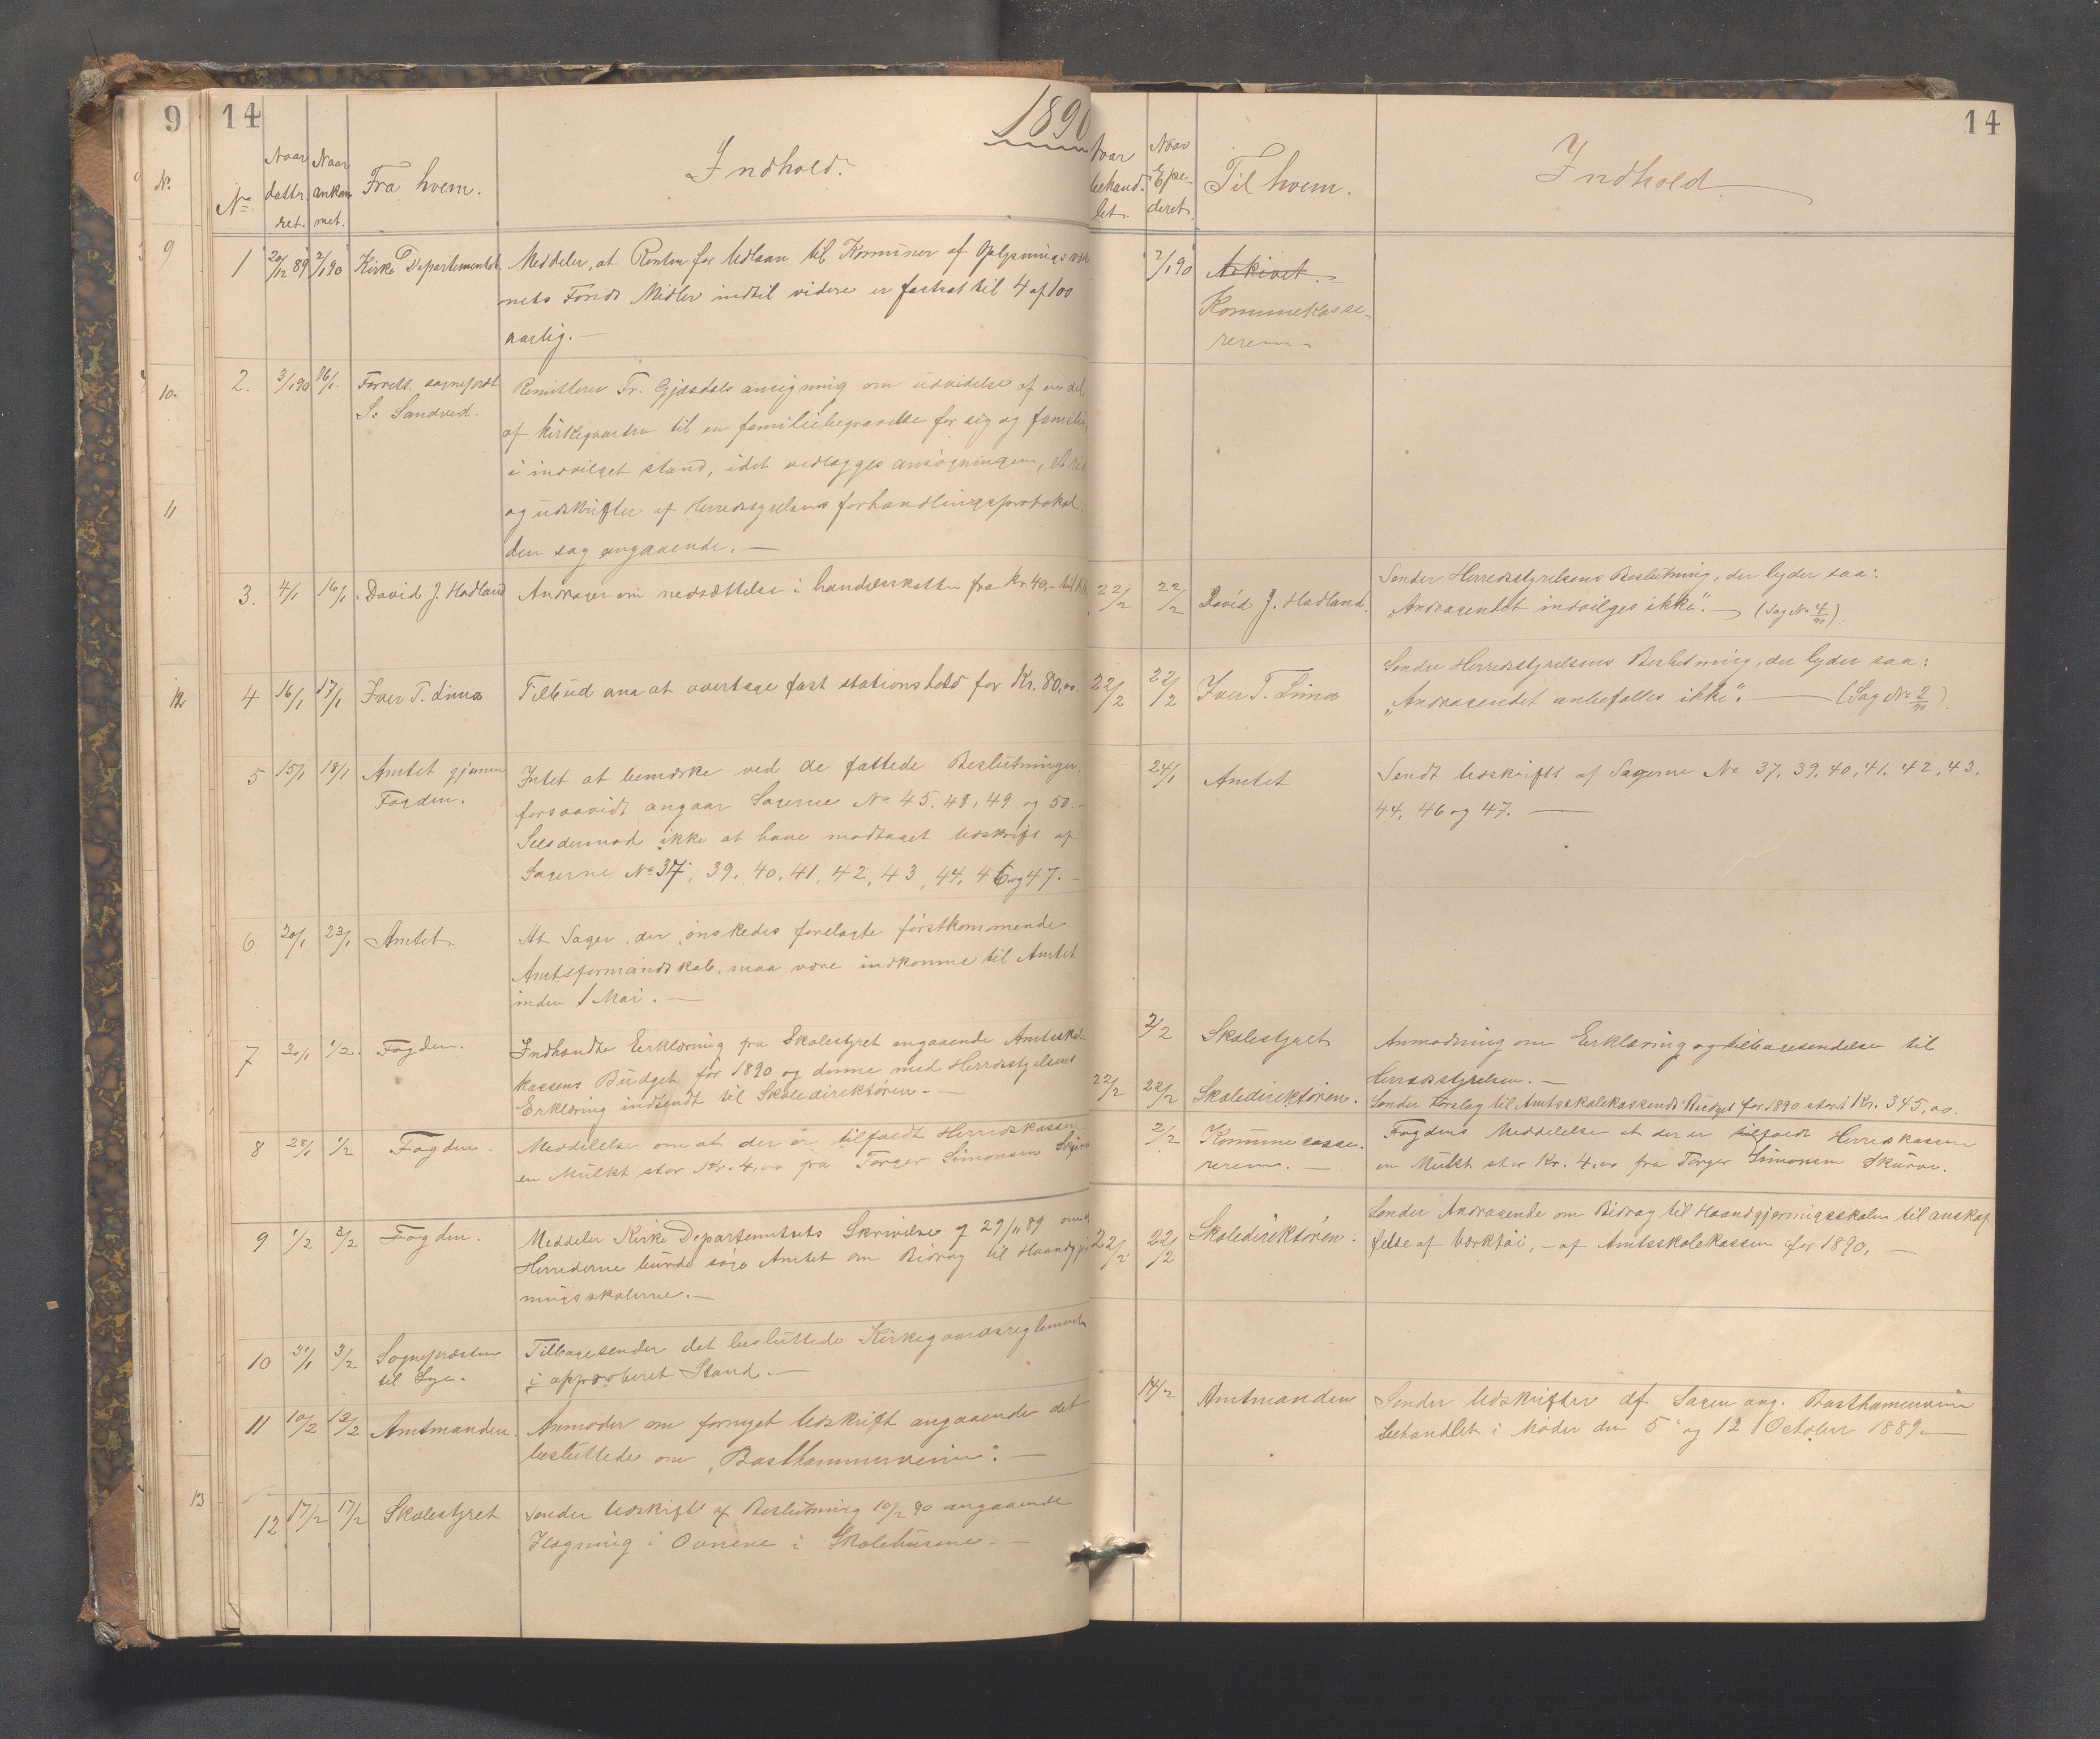 9
14
1890
No
Naar datteret.
Naar ankommet.
Fra hvem.
Indhold.
1 20/12 89 2/1 90 Kirke Departementet Meddeler, at Renten for Udlaan til Kommuner af Oplysningsvæs
nets Fonds Midler indtil videre er fastsat til 4 af 100
aarlig. —
2. 3/1 90 16/1. Forrett. sognepræst Remitterer Tr. Gjesdals ansøgning om udvidelse af en del
S. Sandved. af kirkegaarden til en familiebegravelse for sig og familie,
i indvilget stand, idet vedlægges ansøgningen,
og udskrifter af Herredsstyrelsens forhandlingsprotokol
den sag angaaende. —
3. 4/1 16/1 David J. Hadland Andrager om nedsættelse i handelsskatten fra kr. 40,- til
4 16/1 17/1 Iver T. Lima Tilbud ana at overtage fast stationshold for Kr. 80,00.
5 15/1 18/1 Amtet gjennem Intet at bemærke ved de fattede Beslutninger,
Fogden. forsaavidt angaar Sagerne No 45, 48, 49 og 50. -
Sees dermod ikke at have modtaget Udskrift af
Sagerne No 37, 39, 40, 41, 42, 43, 44, 46 og 47. -
6 20/1 23/1 Amtet. At Sager, der ønskedes forelagte førstkommende
Amtsformandskab, maa være indkomne til Amtet
inden 1 Mai. —
7 30/1 1/2. Fogden. Indhendte Erklæring fra Skolestyret angaaende Amtsskole
kassens Budget for 1890 og denne med Herredsstyrelsens
Erklæring indsendt til Skoledirektøren. —
8 28/1 1/2 Fogden. Meddelelse om at der er tilfaldt Herredskassen
en Mulkt stor Kr. 4,00 fra Torger Simonsen
9 1/2 3/2 Fogden. Meddeler Kirke Departementets Skrivelse af 29/11 89 om at
Herrederne burde søge Amtet om Bidrag til Haandgjer
ningsskolerne. —
10 31/1 3/2 Sognepræsten Tilbagesender det besluttede Kirkegaardsreglement
til Lye. i approberet Stand. —
11 10/2 13/2 Amtmanden. Anmoder om fornyet Udskrift angaaende det
besluttede om „Basthammerveien". —
12 17/2 17/2 Skolestyret Sender Udskrift af Beslutning 10/2 90 angaaende
Ilægning i Ovnene i Skolehusene. —
14
Naar behandlet.
Naar Expederet.
Til hvem.
Indhold
2/1 90 Arkivet. -
Kommunekasse-
reren -
22/2 22/2 David J. Hadland. Sender Herredsstyrelsens Beslutning, der lyder saa:
„Andragendet indvilges ikke". — (Sag No 4/90).
22/2 22/2 Iver T. Lima Sender Herredsstyrelsens Beslutning, der lyder saa:
„Andragendet anbefalles ikke". — (Sag No 2/90).
24/1 Amtet Sendt Udskrift af Sagerne No 37, 39, 40, 41, 42, 43,
44, 46 og 47. —
2/2 Skolestyret Anmodning om Erklæring og tilbagesendelse til
Herredsstyrelsen. —
22/2 22/2 Skoledirektøren. Sender Forslag til Amtsskolekassens Budget for 1890 stort Kr. 345,00.
2/2 Kommunecasse- Fogdens Meddelelse at der er tilfaldt Herredskassen
reren. — en Mulkt stor Kr. 4,00 fra Torger Simonsen Skurve.
22/2 22/2 Skoledirektøren. Sender Andragende om Bidrag til Haandgjerningsskolen til anskaf
felse af Værktøi, - af Amtsskolekassen for 1890. —
14/2 Amtmanden Sender Udskrifter af Sagen ang. Basthammerveien
behandlet i Møder den 5 og 12 October 1889. —
No.
9
10.
11
12
13